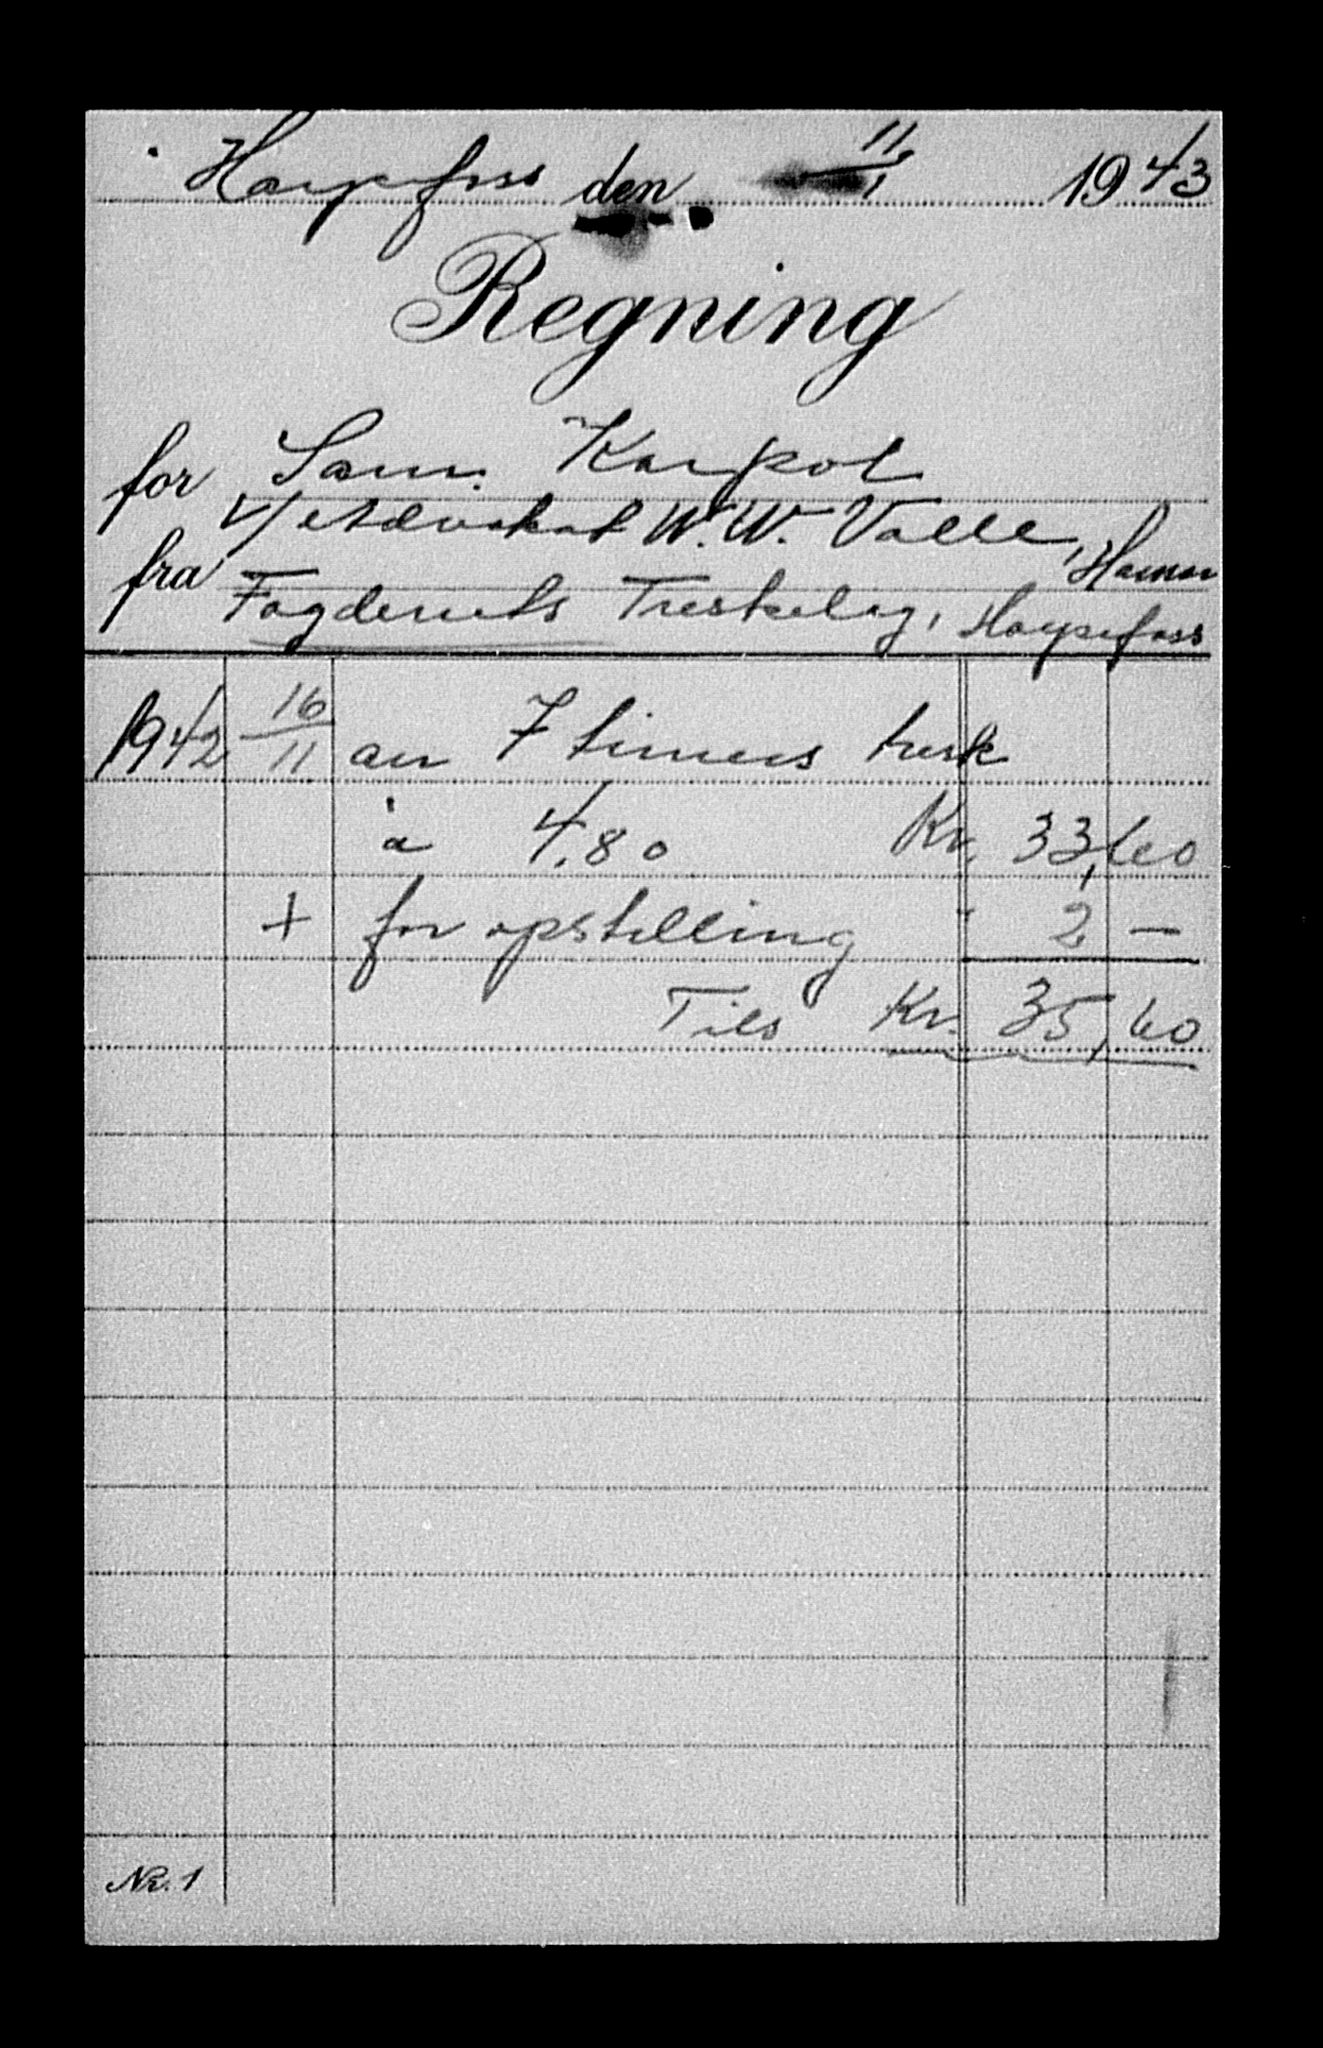 Harpefoss den 11/1 1943
Regning
for Sam. Karpol
v/ Advokat W.W. Valle, Hamar
fra Fagderuts Treskelag, Harpefoss
1942 16/11 an 7 timers tresk
à 4,80 Kr. 33,60
+ for opstilling " 2 —
Tils Kr. 35,60
Nr. 1